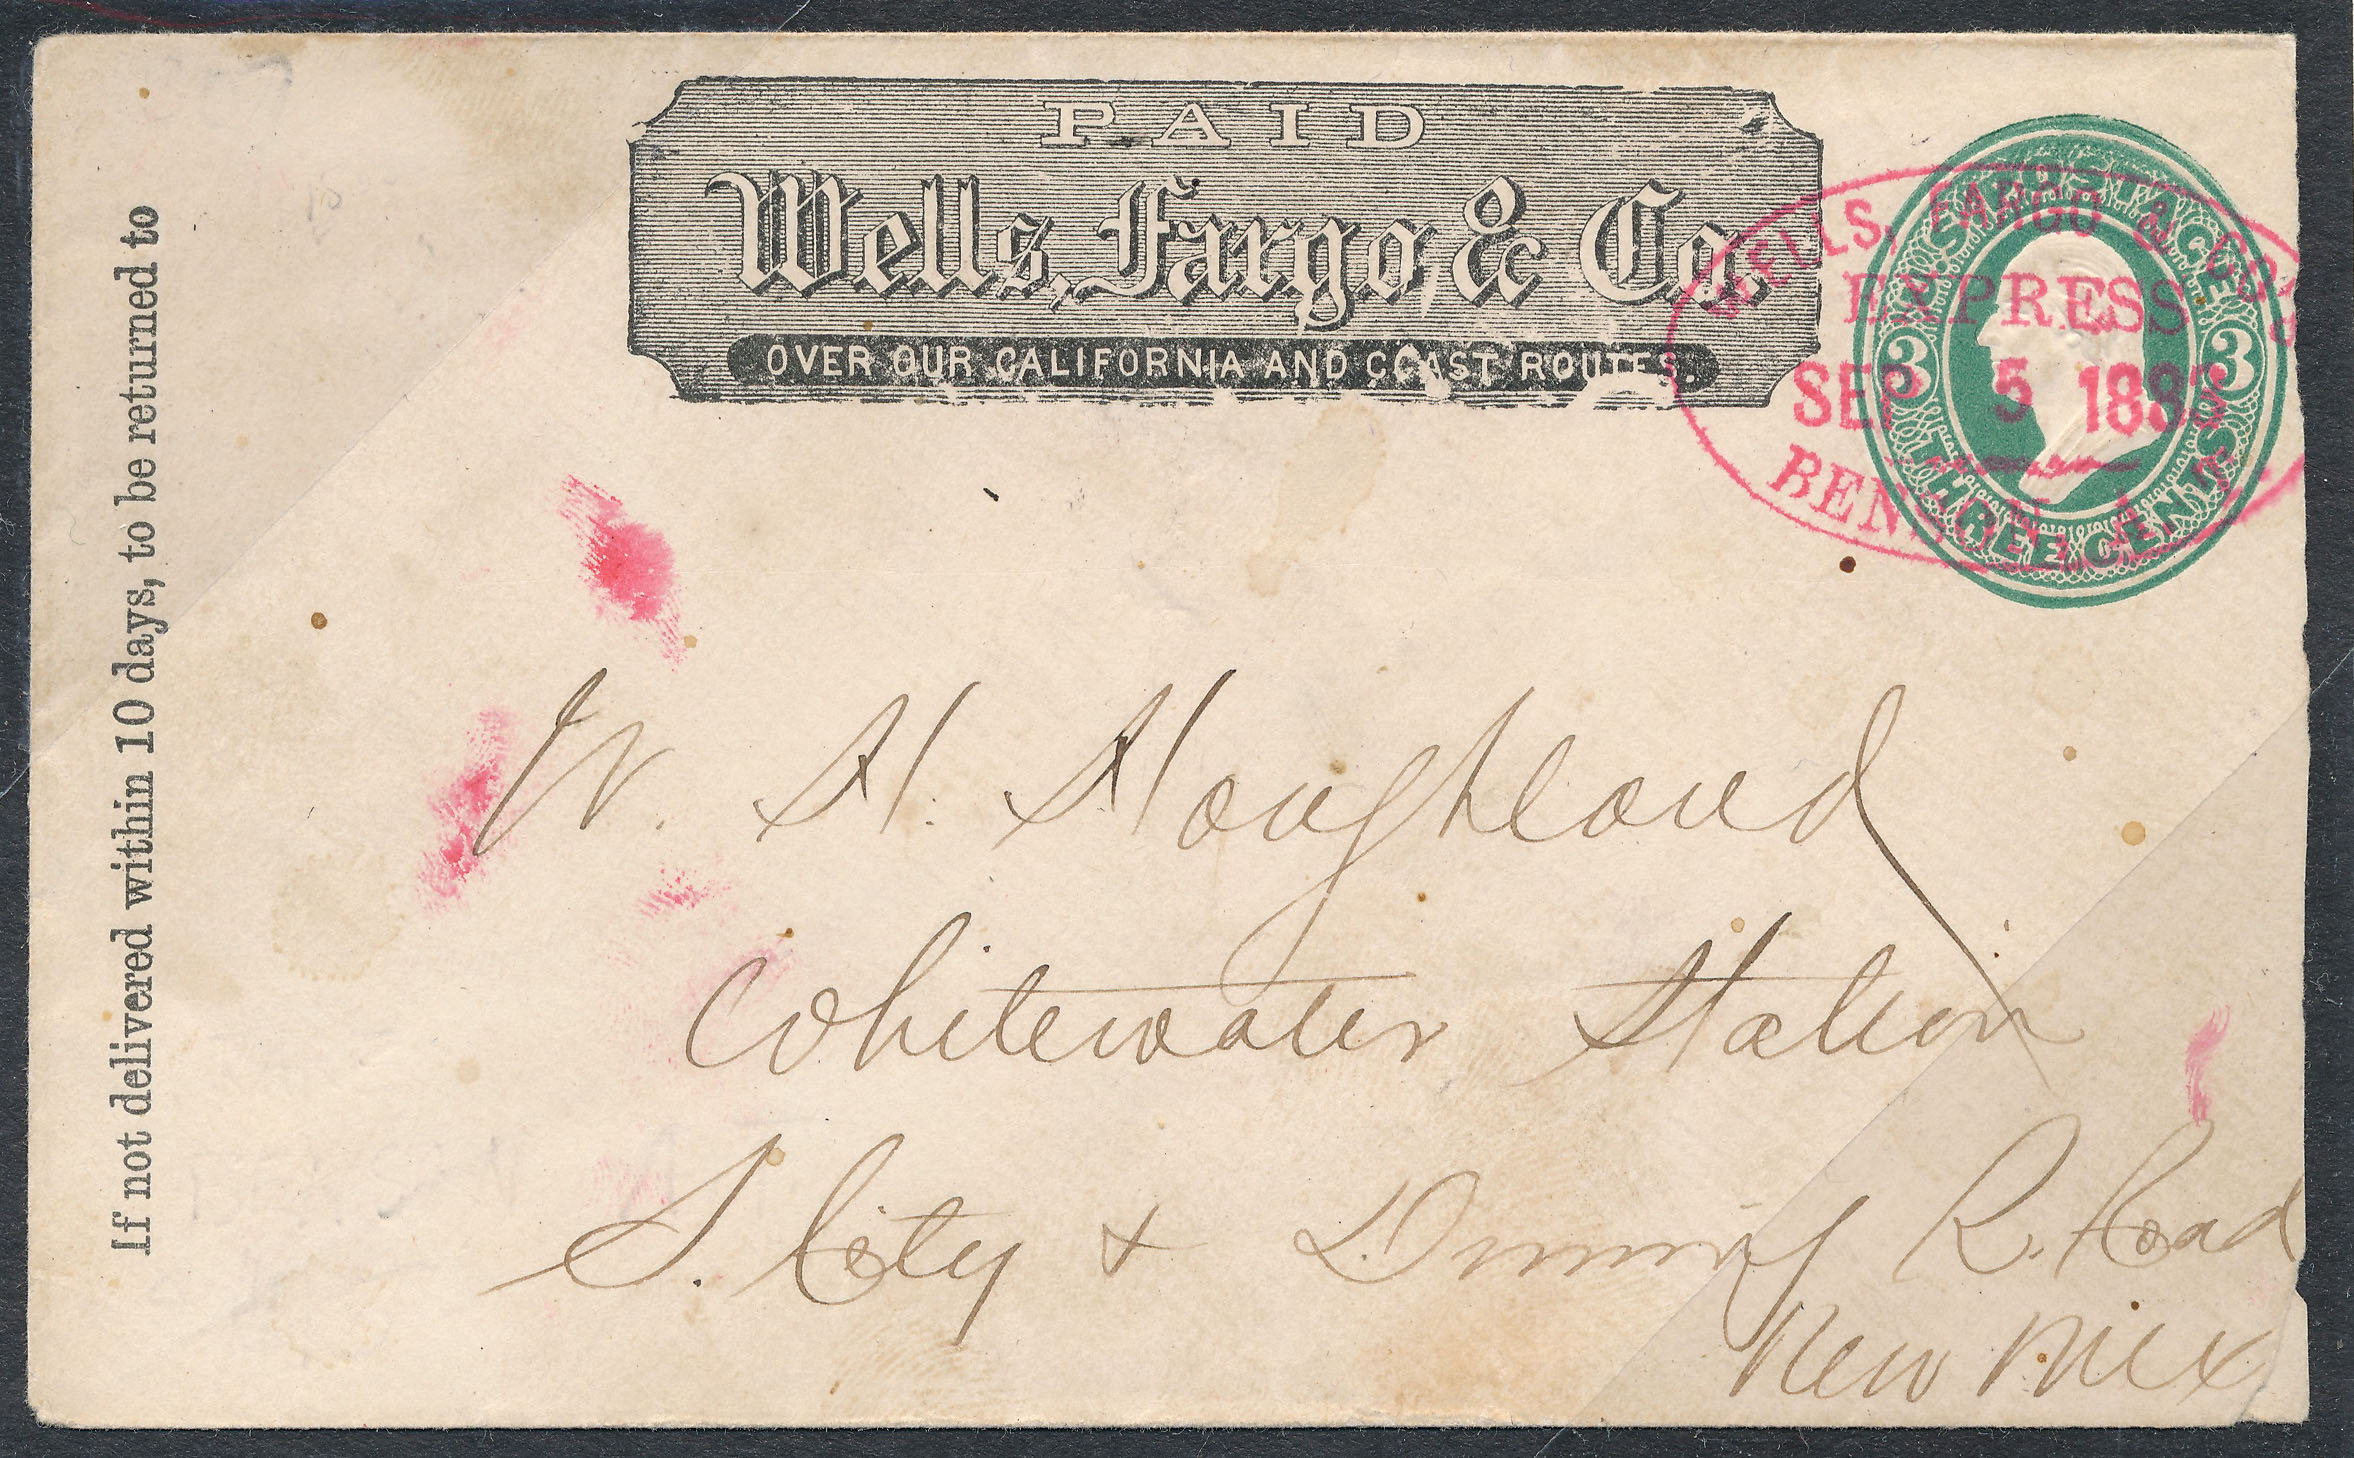 PAID
Wells, Fargo & Co.
OVER OUR CALIFORNIA AND COAST ROUTES.
WELLS, FARGO & CO'S
EXPRESS
SEP 5 188
U.S. POSTAGE
3 3
THREE CENTS
If not delivered within 10 days, to be returned to
W. H. Houghland
Whitewater Station
S. City & Deming R. Road
New Mex